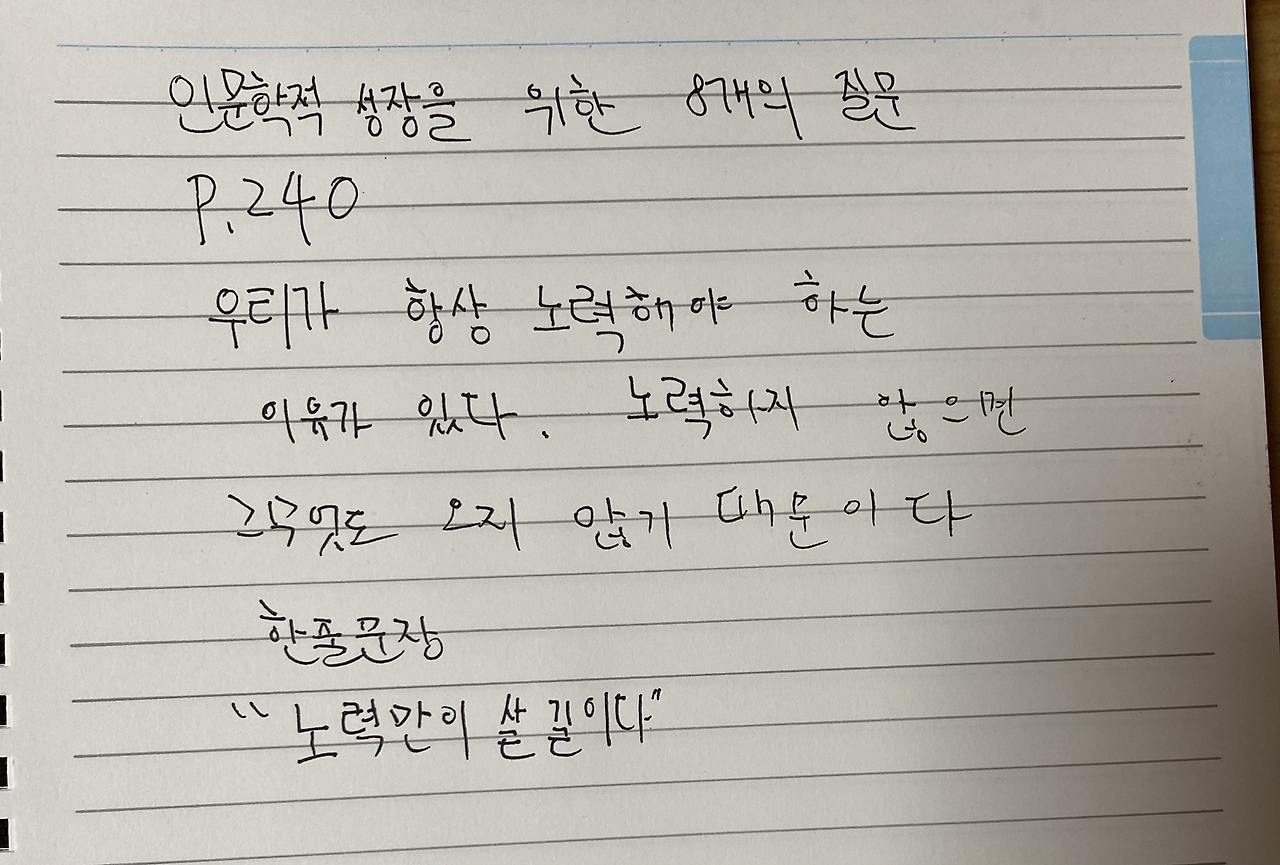 인문학적 성장을 위한 8개의 질문
P.240
우리가 항상 노력해야 하는
이유가 있다. 노력하지 않으면
그 무엇도 오지 않기 때문이다
한줄문장
"노력만이 살 길이다"